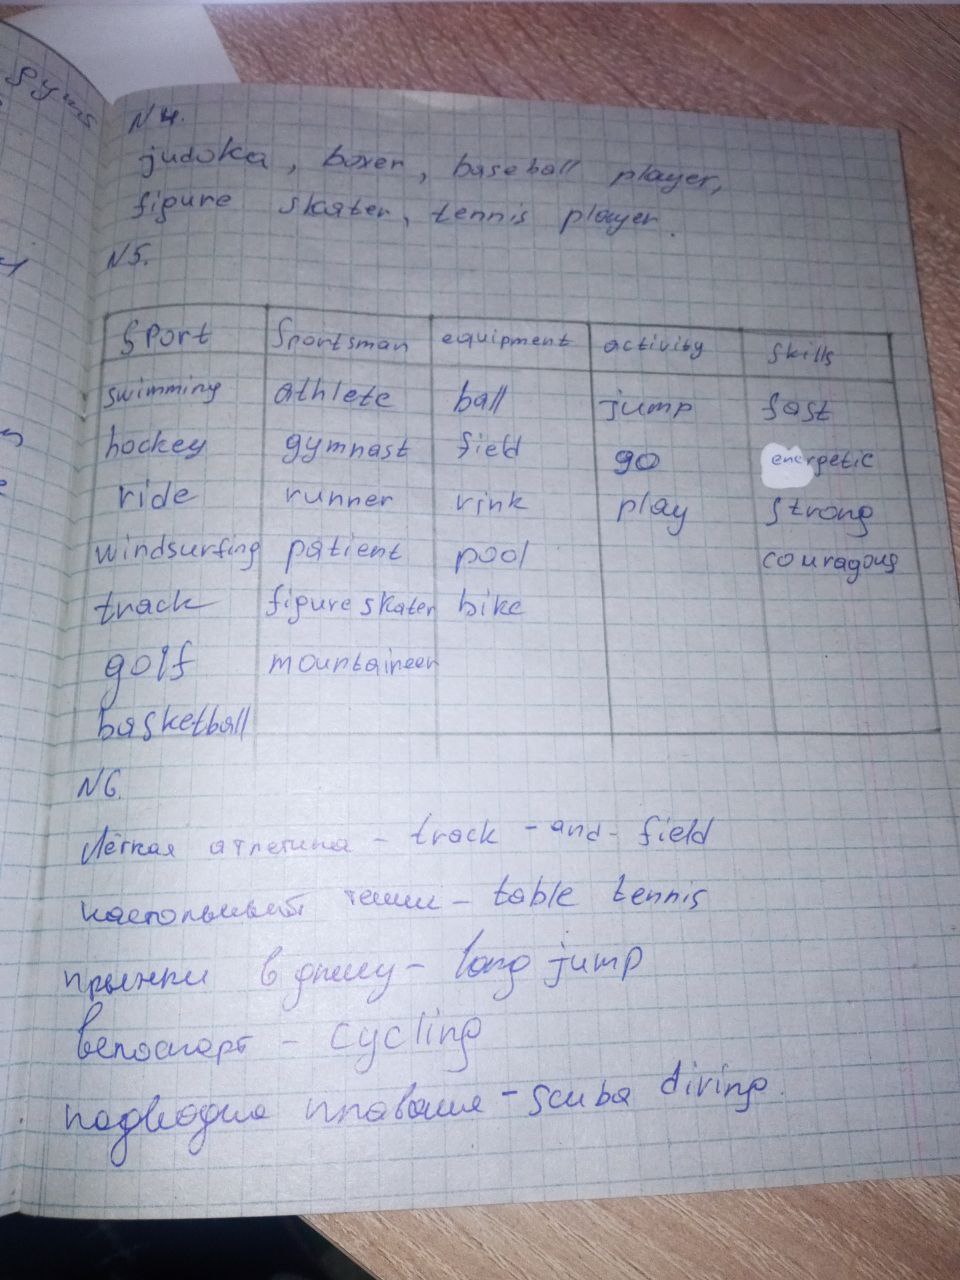 N4.
judoka, boxer, baseball player,
figure skater, tennis player.
N5.
Sport Sportsman equipment activity skills
swimming athlete ball jump fast
hockey gymnast field go energetic
ride runner rink play strong
windsurfing patient pool couragous
track figure skater bike
golf mountaineer
basketball
N6.
Лёгкая атлетика - track - and - field
настольный теннис - table tennis
прыжки в длину - long jump
велоспорт - cycling
подводное плавание - scuba diving.